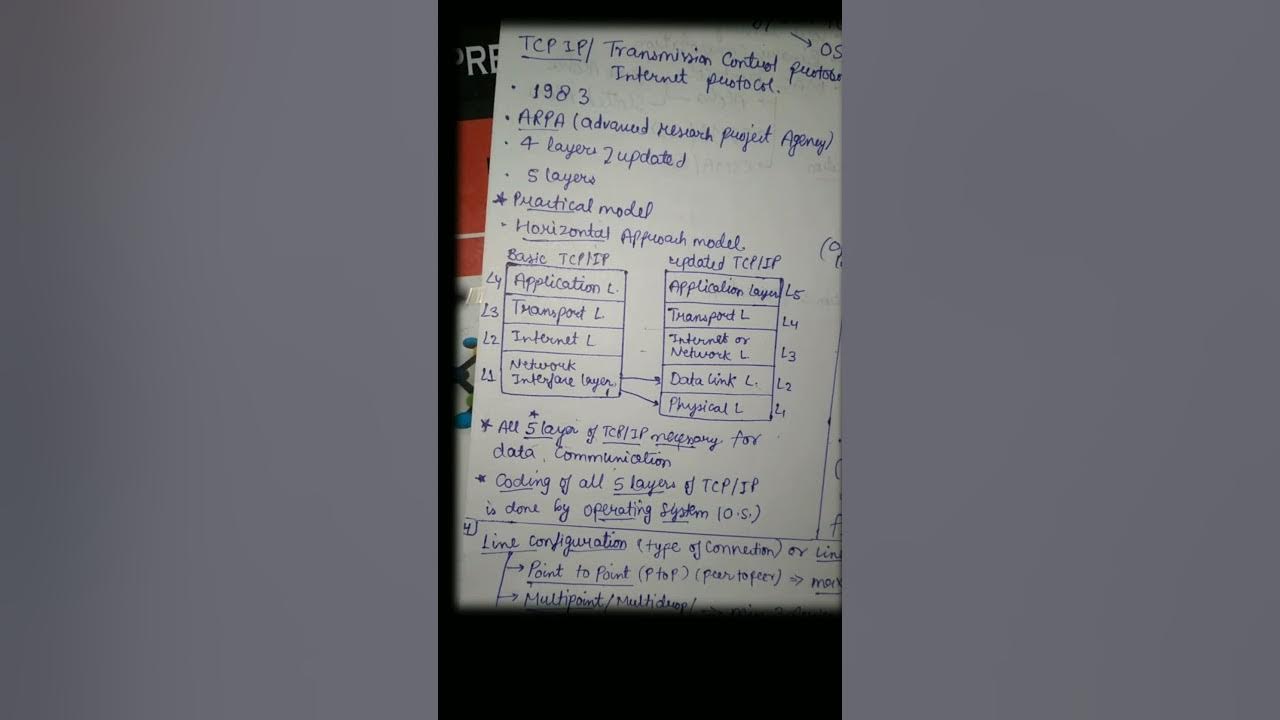 PRE
OS
TCP IP/ Transmission Control protoco
Internet protocol.
· 1983
· ARPA (advanced research project Agency)
· 4 layers } updated
· 5 layers
* Practical model
· Horizontal Approach model.
Basic TCP/IP
L4 Application L.
L3 Transport L.
L2 Internet L
L1 Network
Interface layer.
updated TCP/IP
Application layer L5
Transport L L4
Internet or
Network L. L3
Data link L. L2
Physical L L1
* All 5 layer of TCP/IP necessary for
data communication
* Coding of all 5 layers of TCP/IP
is done by operating System (O.S.)
4) Line configuration (type of connection) or Line
→ Point to Point (P to P) (peer to peer) ⇒
→ Multipoint/Multidrop/ →